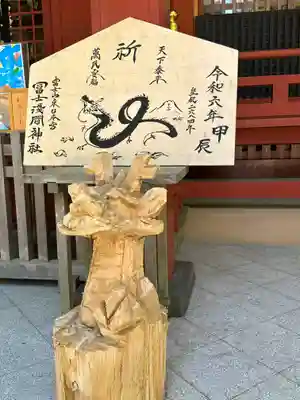 令和六年 甲辰
皇紀二六八四年
天下泰平
祈
萬民安福
富士山東口本宮
冨士浅間神社